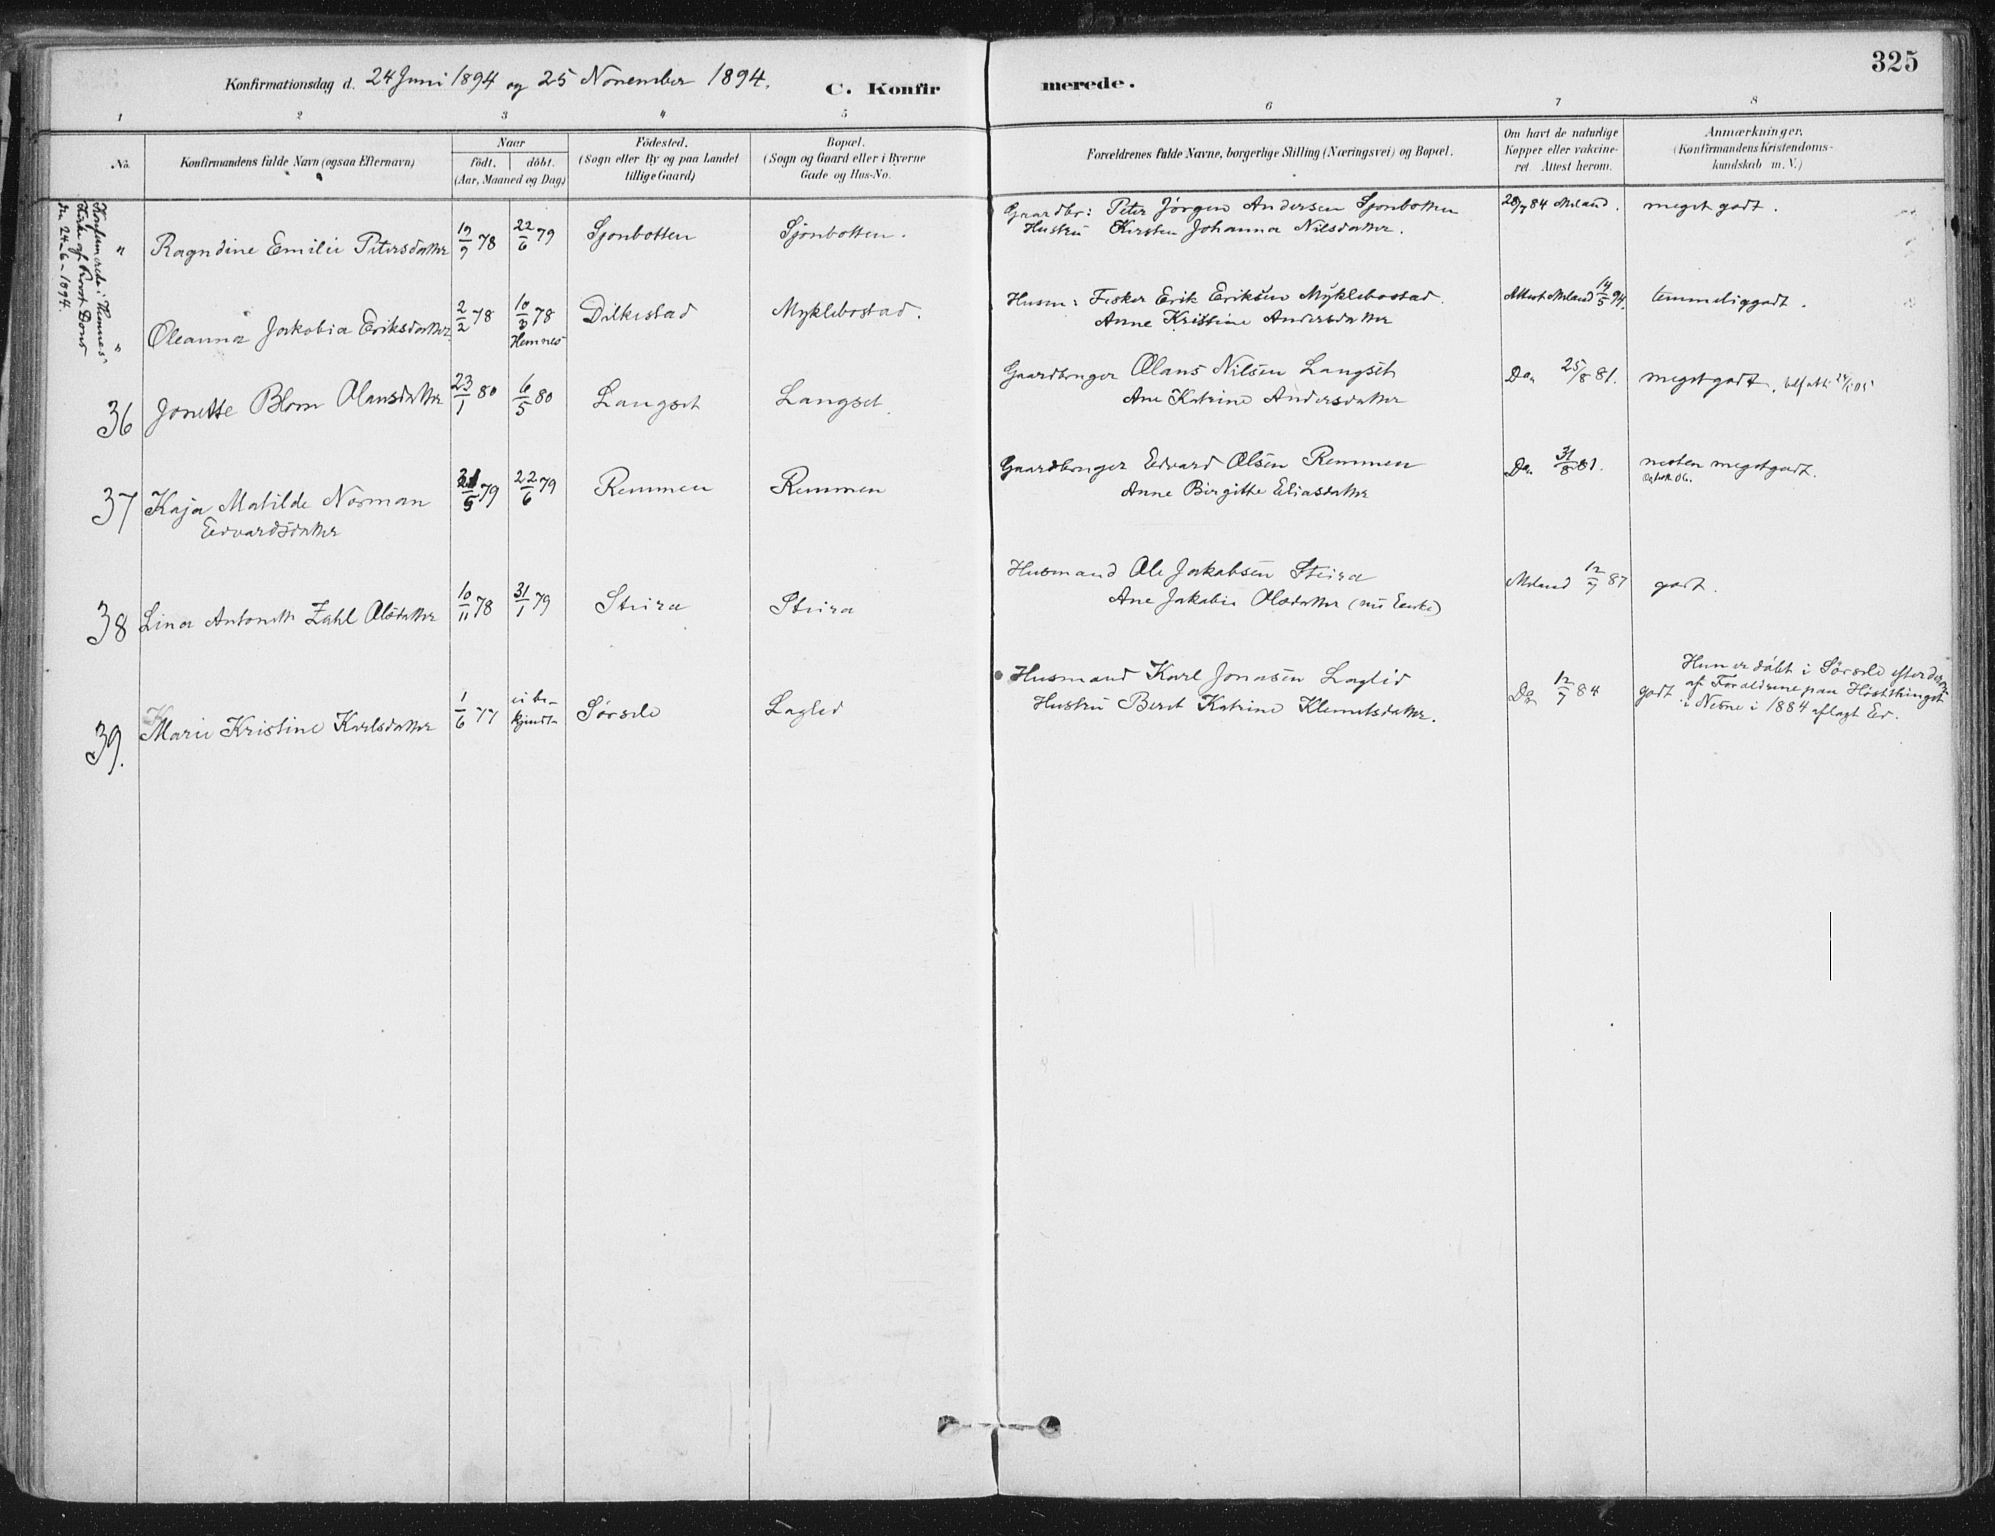 325
Konfirmationsdag d. 24 Juni 1894 og 25 November 1894. C. Konfirmerede.
1 2 3 4 5 6 7 8
No. Konfirmandens fulde Navn (ogsaa Efternavn) Naar födt. döbt. (Aar, Maaned og Dag) Födested. (Sogn eller By og paa Landet tillige Gaard) Bopæl. (Sogn og Gaard eller i Byerne Gade og Hus-No. Forældrenes fulde Navne, borgerlige Stilling (Næringsvei) og Bopæl. Om havt de naturlige Kopper eller vakcineret. Attest herom. Anmærkninger. (Konfirmandens Kristendomskundskab m. V.)
Konfirmerede i Hemnes
Kirke af Provst Dons
den 24-6-1894.
" Ragndine Emilie Petersdatter 19/9 78 22/6 79 Sjonbotten Sjonbotten. Gaardbr: Peter Jørgen Andersen Sjonbotten 28/7 84 Meland. meget godt.
Hustru Kirsten Johanna Nilsdatter.
" Oleanna Jakobia Eriksdatter 2/2 78 78 Hemnes Dilkestad Myklebostad. Husm: Fisker Erik Eriksen Myklebostad. Attest Meland 14/5 94. temmelig godt.
Anne Kristine Andersdatter
36 Jonette Blom Olausdatter 23/1 80 6/5 80 Langset Langset. Gaardbruger Olaus Nilsen Langset Do. 25/8 81. meget godt.
Ane Katrine Andersdatter
37 Kaja Matilde Norman 79 22/6 79 Remmen Remmen Gaardbruger Edvard Olsen Remmen Do. 31/8 81. nesten meget godt.
Edvardsdatter Anne Birgitte Eliasdatter
38 Lina Antonette Zahl Olsdatter 10/11 78 31/1 79 Steira Steira Husmand Ole Jakobsen Steira Meland 12/7 87 godt.
Ane Jakobie Olsdatter (nu Enke)
39. Marie Kristine Karlsdatter 1/6 77 ei bekjendt Sørsele Laglid Husmand Karl Jonasen Laglid Do. 12/7 84 godt
Hustru Beret Katrine Klemetsdatter.
Hun er døbt i Sørsele efter den
af Forældrene paa Høstthinget
i Nesne i 1884 aflagt Ed.